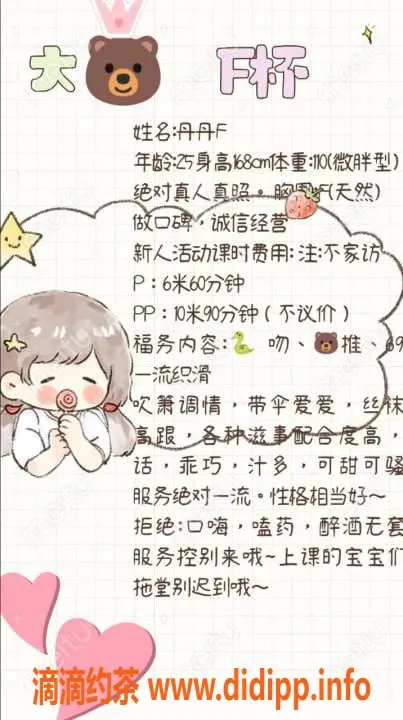 大🐻 F杯
姓名:丹丹F
年龄:25身高168cm体重:110(微胖型)
绝对真人真照。胸围:F(天然)
做口碑,诚信经营
新人活动课时费用:注:不家访
P:6米60分钟
PP:10米90分钟(不议价)
福务内容:🐍吻、🐻推、69
一流织滑
吹箫调情,带伞爱爱,丝袜
高跟,各种滋事配合度高,
话,乖巧,汁多,可甜可骚
服务绝对一流。性格相当好~
拒绝:口嗨,嗑药,醉酒无套
服务控别来哦~上课的宝宝们
拖堂别迟到哦~
滴滴约茶 www.didipp.info